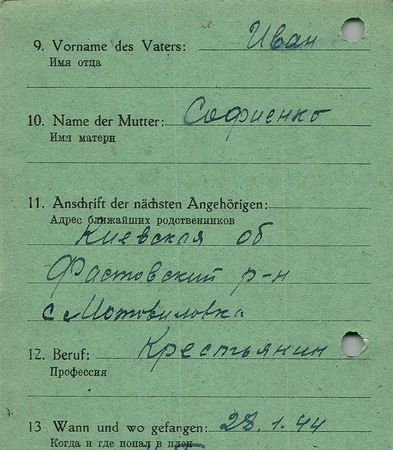 9. Vorname des Vaters: Иван
Имя отца
10. Name der Mutter: Софиенко
Имя матери
11. Anschrift der nächsten Angehörigen:
Адрес ближайших родственников
Киевская об
Фастовский р-н
с Мотовиловка
12. Beruf: Крестьянин
Профессия
13 Wann und wo gefangen: 28.1.44
Когда и где попал в плен